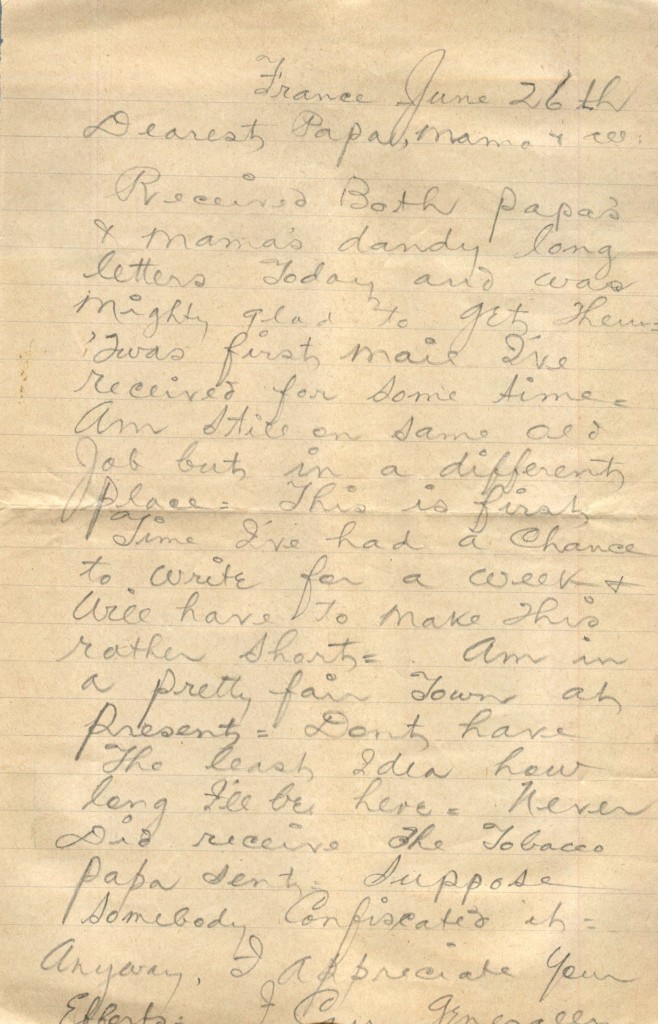 France June 26th
Dearest Papa, Mama & all:
Received Both Papa's
& Mama's dandy long
letters Today and was
Mighty glad to get Them =
'Twas first mail I've
received for some time =
Am still on same old
Job but in a different
place = This is first
Time I've had a Chance
to write for a week &
Will have to make This
rather short = Am in
a pretty fair Town at
present = Dont have
The least Idea how
long I'll be here = Never
Did receive the Tobacco
Papa sent = Suppose
Somebody Confiscated it =
Anyway, I appreciate your
Efforts = I Can Generally